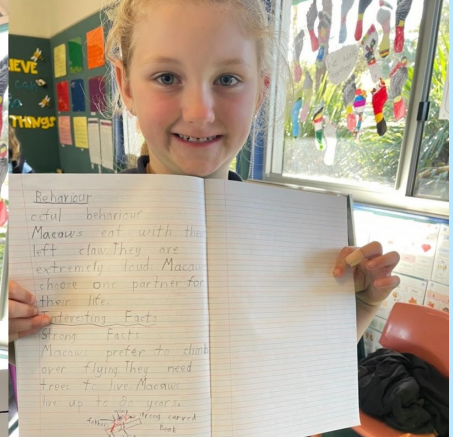 IEVE
THINGS
Behaviour
behaviour
Macaws eat with the
left claw. They are
extremely loud. Macaw
choose one partner for
their life.
nteresting Facts
Strong Facts
Macaws prefer to climb
over flying. They need
trees to live. Macaws
live up to 80 years.
strong curved
beak